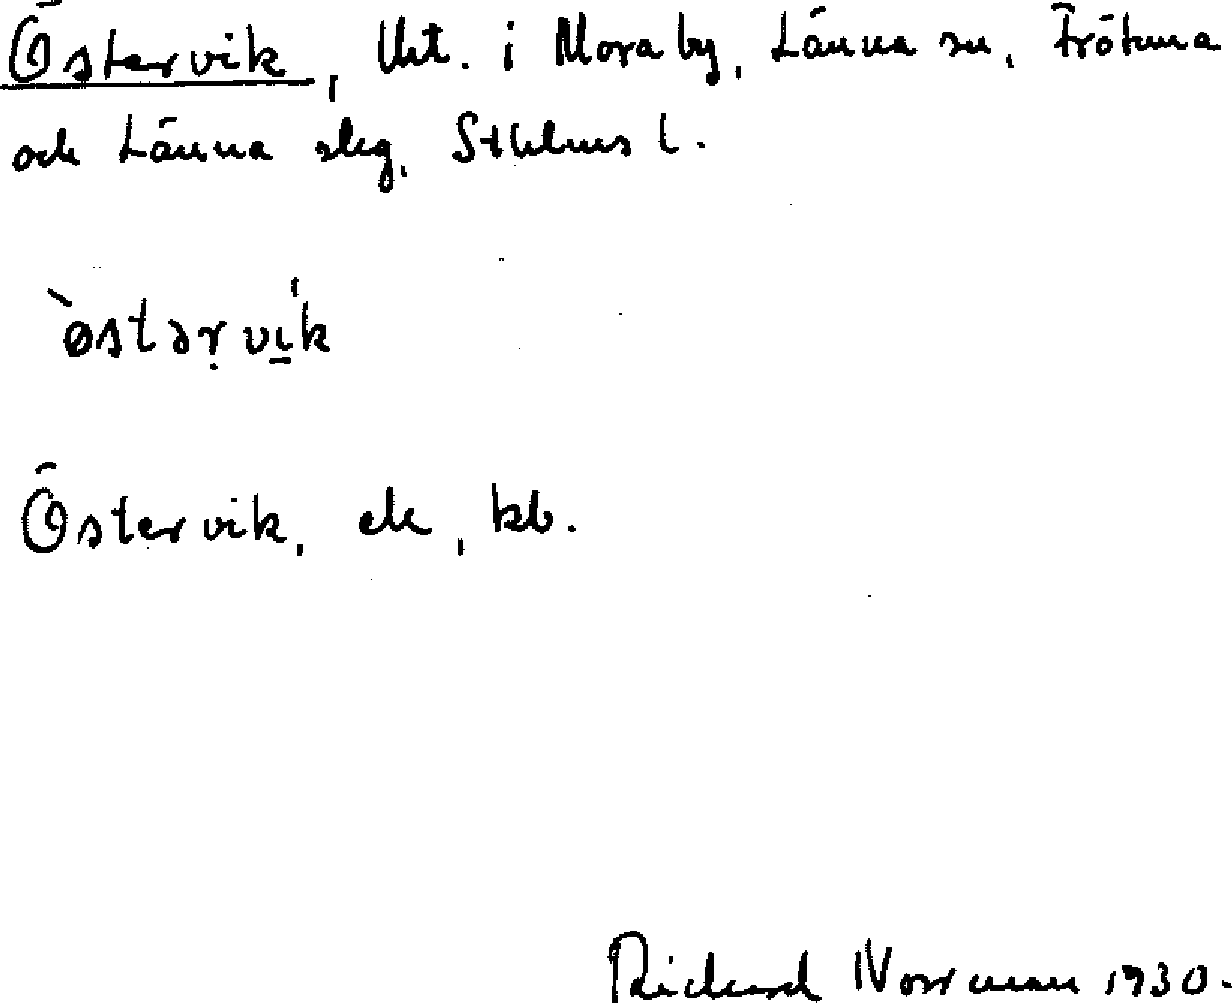 Östervik, lht. i Mora by, Länna sn, Frötuna
och Länna slg, Sthlms l.
`østəṛvi̲k
Östervik, ek, kb.
Rickard Norrman 1930.